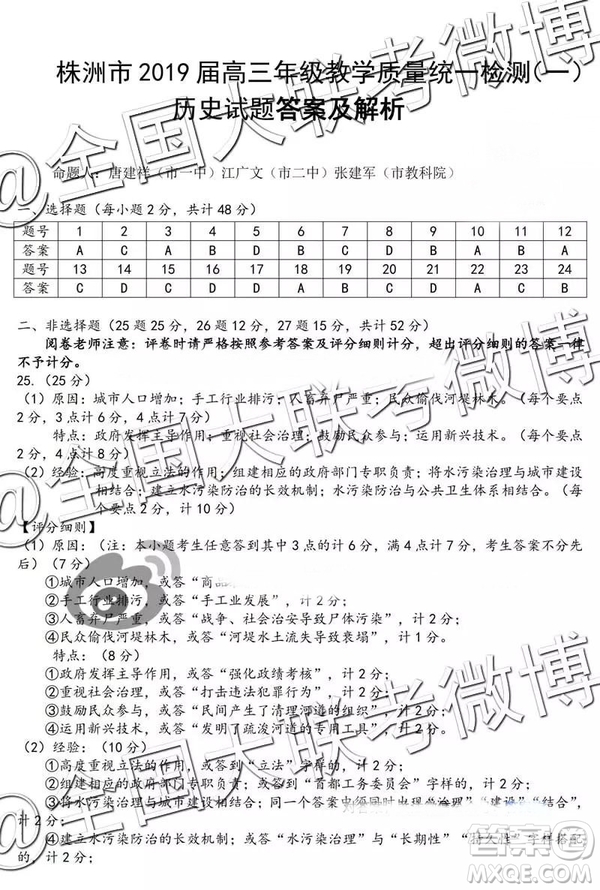 株洲市 2019 届高三年级教学质量统一检测(一)
历史试题答案及解析
命题人：唐建祥（市一中）江广文（市二中）张建军（市教科院）
一、选择题（每小题2分，共计48分）
题号 1 2 3 4 5 6 7 8 9 10 11 12
答案 A C A B D B C D B D A A
题号 13 14 15 16 17 18 19 20 21 22 23 24
答案 C D C D A B C B A C D C
二、非选择题（25题25分，26题12分，27题15分，共计52分）
阅卷老师注意：评卷时请严格按照参考答案及评分细则计分，超出评分细则的答案一律
不予计分。
25.（25分）
（1）原因：城市人口增加；手工行业排污；人畜弃尸严重；民众偷伐河堤林木。（每个要点
2分，3点计6分，4点计7分）
特点：政府发挥主导作用；重视社会治理；鼓励民众参与；运用新兴技术。（每个要点2分，共计8分）
（2）经验：高度重视立法的作用，组建相应的政府部门专职负责；将水污染治理与城市建设
相结合；建立水污染防治的长效机制；水污染防治与公共卫生体系相结合。（每
个要点2分，计10分）
【评分细则】
（1）原因：（注：本小题考生任意答到其中3点的计6分，满4点计7分，考生答案不分先
后）（7分）
①城市人口增加，或答“商品
②手工行业排污，或答“手工业发展”，计2分；
③人畜弃尸严重，或答“战争、社会治安导致尸体污染”，计2分；
④民众偷伐河堤林木，或答“河堤水土流失导致衰塌”，计1分；
特点：（8分）
①政府发挥主导作用，或答“强化政绩考核”，计2分；
②重视社会治理，或答“打击违法犯罪行为”，计2分；
③鼓励民众参与，或答“民间产生了清理河道的组织”，计2分；
④运用新兴技术，或答“发明了疏浚河道的专用工具”，计2分；
（2）经验：（10分）
①高度重视立法的作用，或答“法律”“立法”字样的，计2分；
②组建相应的政府部门专职负责，或答“组建皇家委员会”字样的，计2分；
③将水污染治理与城市建设相结合；同一个答案中须同时出现“治理”“建设”“结合”，
计2分；
④建立水污染防治的长效机制，或答“水污染治理”与“长期性”“持久性”字样搭配
的，计2分；
@全国大联考微博
@全国大联考微博
@全国大联考微博